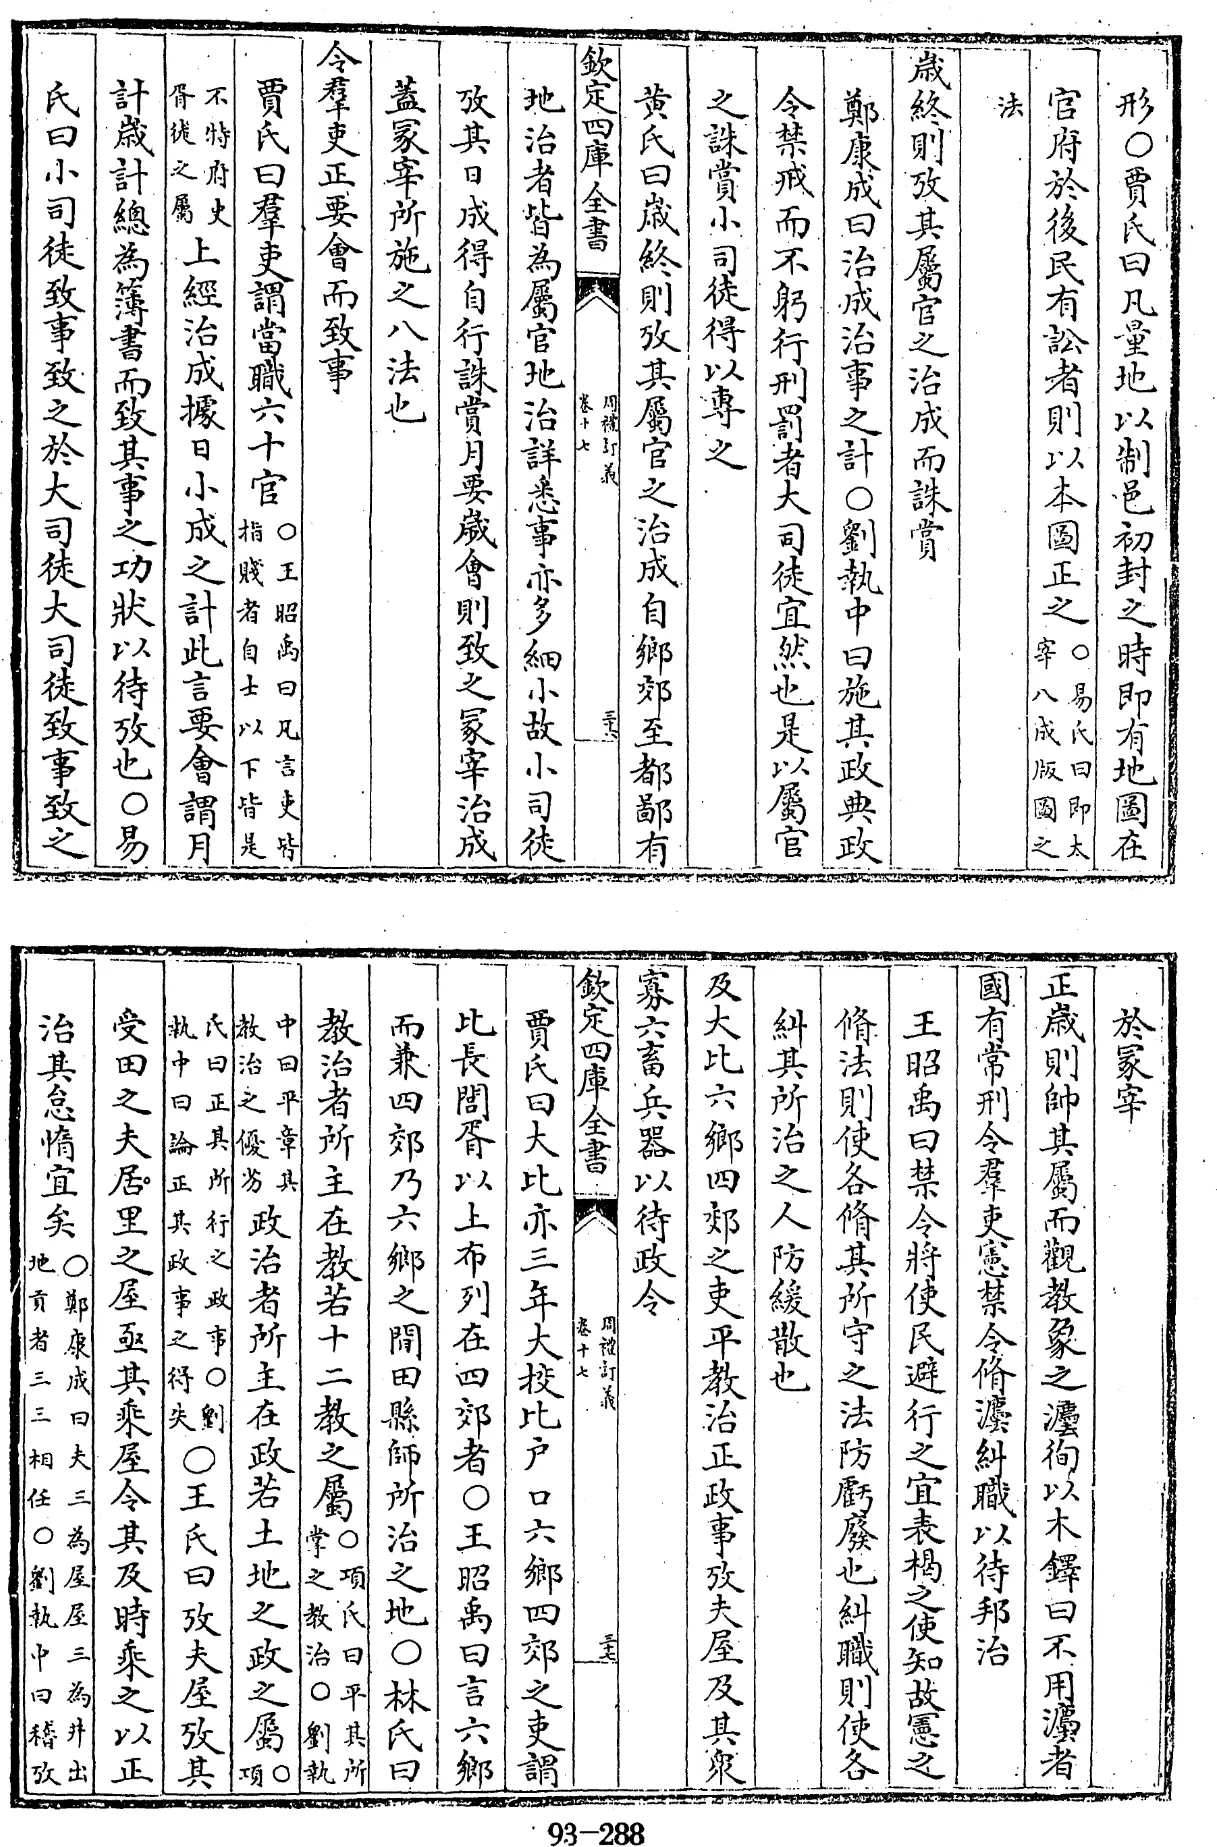 形○賈氏曰凡量地以制邑初封之時即有地圖在
官府於後民有訟者則以本圖正之○易氏曰即太宰八成版圖之
法
歲終則攷其屬官之治成而誅賞
鄭康成曰治成治事之計○劉執中曰施其政典政
令禁戒而不躬行刑罰者大司徒宜然也是以屬官
之誅賞小司徒得以專之
黄氏曰歲終則攷其屬官之治成自鄉郊至都鄙有
欽定四庫全書
周禮訂義
卷十七
三十六
地治者皆為屬官地治詳悉事亦多細小故小司徒
攷其日成得自行誅賞月要歲會則致之冢宰治成
蓋冢宰所施之八法也
令羣吏正要會而致事
賈氏曰羣吏謂當職六十官○王昭禹曰凡言吏皆指賤者自士以下皆是
不特府史胥徒之屬上經治成據日小成之計此言要會謂月
計歲計總為簿書而致其事之功狀以待攷也○易
氏曰小司徒致事致之於大司徒大司徒致事致之
於冢宰
正歲則帥其屬而觀教象之灋徇以木鐸曰不用灋者
國有常刑令羣吏憲禁令脩灋糾職以待邦治
王昭禹曰禁令將使民避行之宜表楬之使知故憲之
脩法則使各脩其所守之法防虧廢也糾職則使各
糾其所治之人防緩散也
及大比六鄉四郊之吏平教治正政事攷夫屋及其衆
寡六畜兵器以待政令
欽定四庫全書
周禮訂義
卷十七
三十七
賈氏曰大比亦三年大挍比户口六鄉四郊之吏謂
比長閭胥以上布列在四郊者○王昭禹曰言六鄉
而兼四郊乃六鄉之間田縣師所治之地○林氏曰
教治者所主在教若十二教之屬○項氏曰平其所掌之教治○劉執
中曰平章其教治之優劣政治者所主在政若土地之政之屬○項
氏曰正其所行之政事○劉執中曰論正其政事之得失○王氏曰攷夫屋攷其
受田之夫居里之屋亟其乘屋令其及時乘之以正
治其怠惰宜矣○鄭康成曰夫三為屋屋三為井出地貢者三三相任○劉執中曰稽攷
93-288